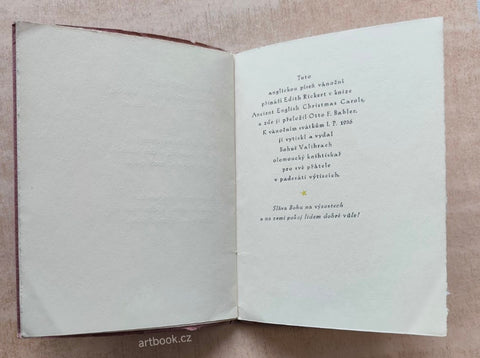 Tuto
anglickou píseň vánoční
přináší Edith Rickert v knize
Ancient English Christmas Carols,
a zde ji přeložil Otto F. Babler.
K vánočním svátkům L. P. 1938
ji vytiskl a vydal
Bohuš Valihrach
olomoucký knihtiskař
pro své přátele
v padesáti výtiscích.
Sláva Bohu na výsostech
a na zemi pokoj lidem dobré vůle!
artbook.cz